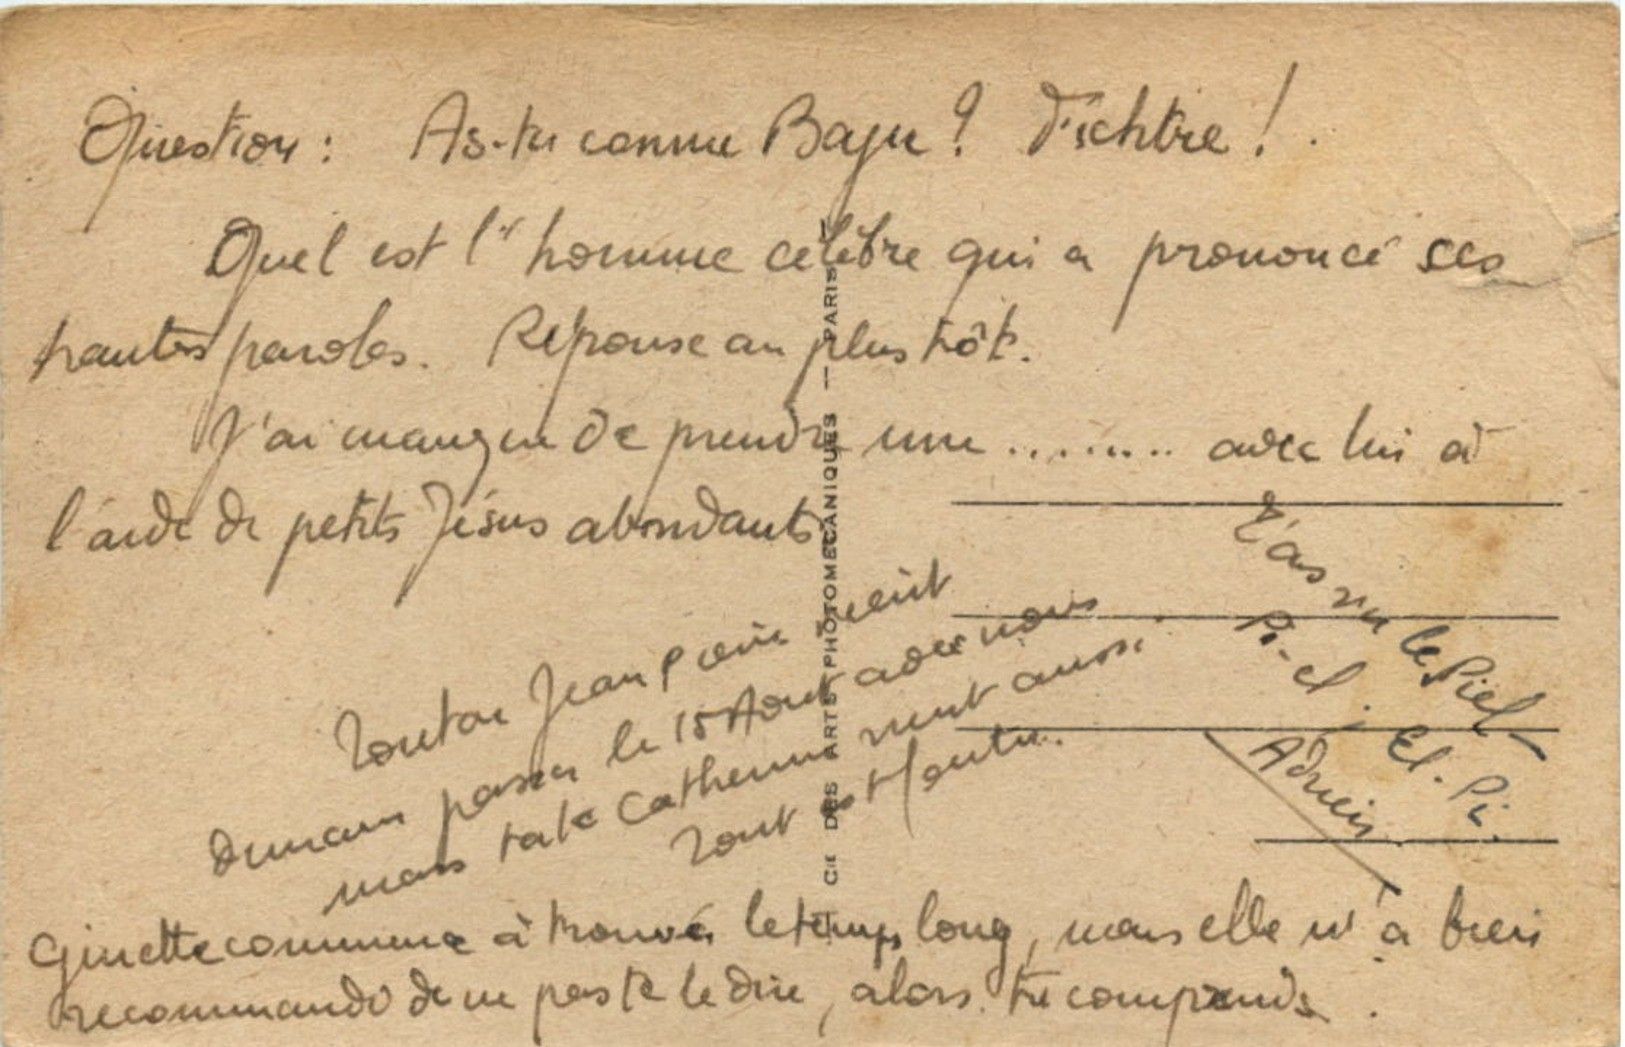 Question : As-tu connu Baju ? Fichtre ! .
Quel est l' homme célèbre qui a prononcé ses
hautes paroles. Réponse au plus tôt.
J'ai manqué de prendre une ......... avec lui à
l'aide de petits Jésus abondants
Tonton Jean pierre vient
demain passer le 15 Août avec nous
mais tate Catherine vient aussi.
Tout est foutu.
T'as vu le Piel-
Pi-el, El. Pi.
Adrien
Ginette commence à trouver le temps long, mais elle m'a bien
recommandé de ne pas te le dire, alors. tu comprends .
CIE DES ARTS PHOTOMECANIQUES — PARIS